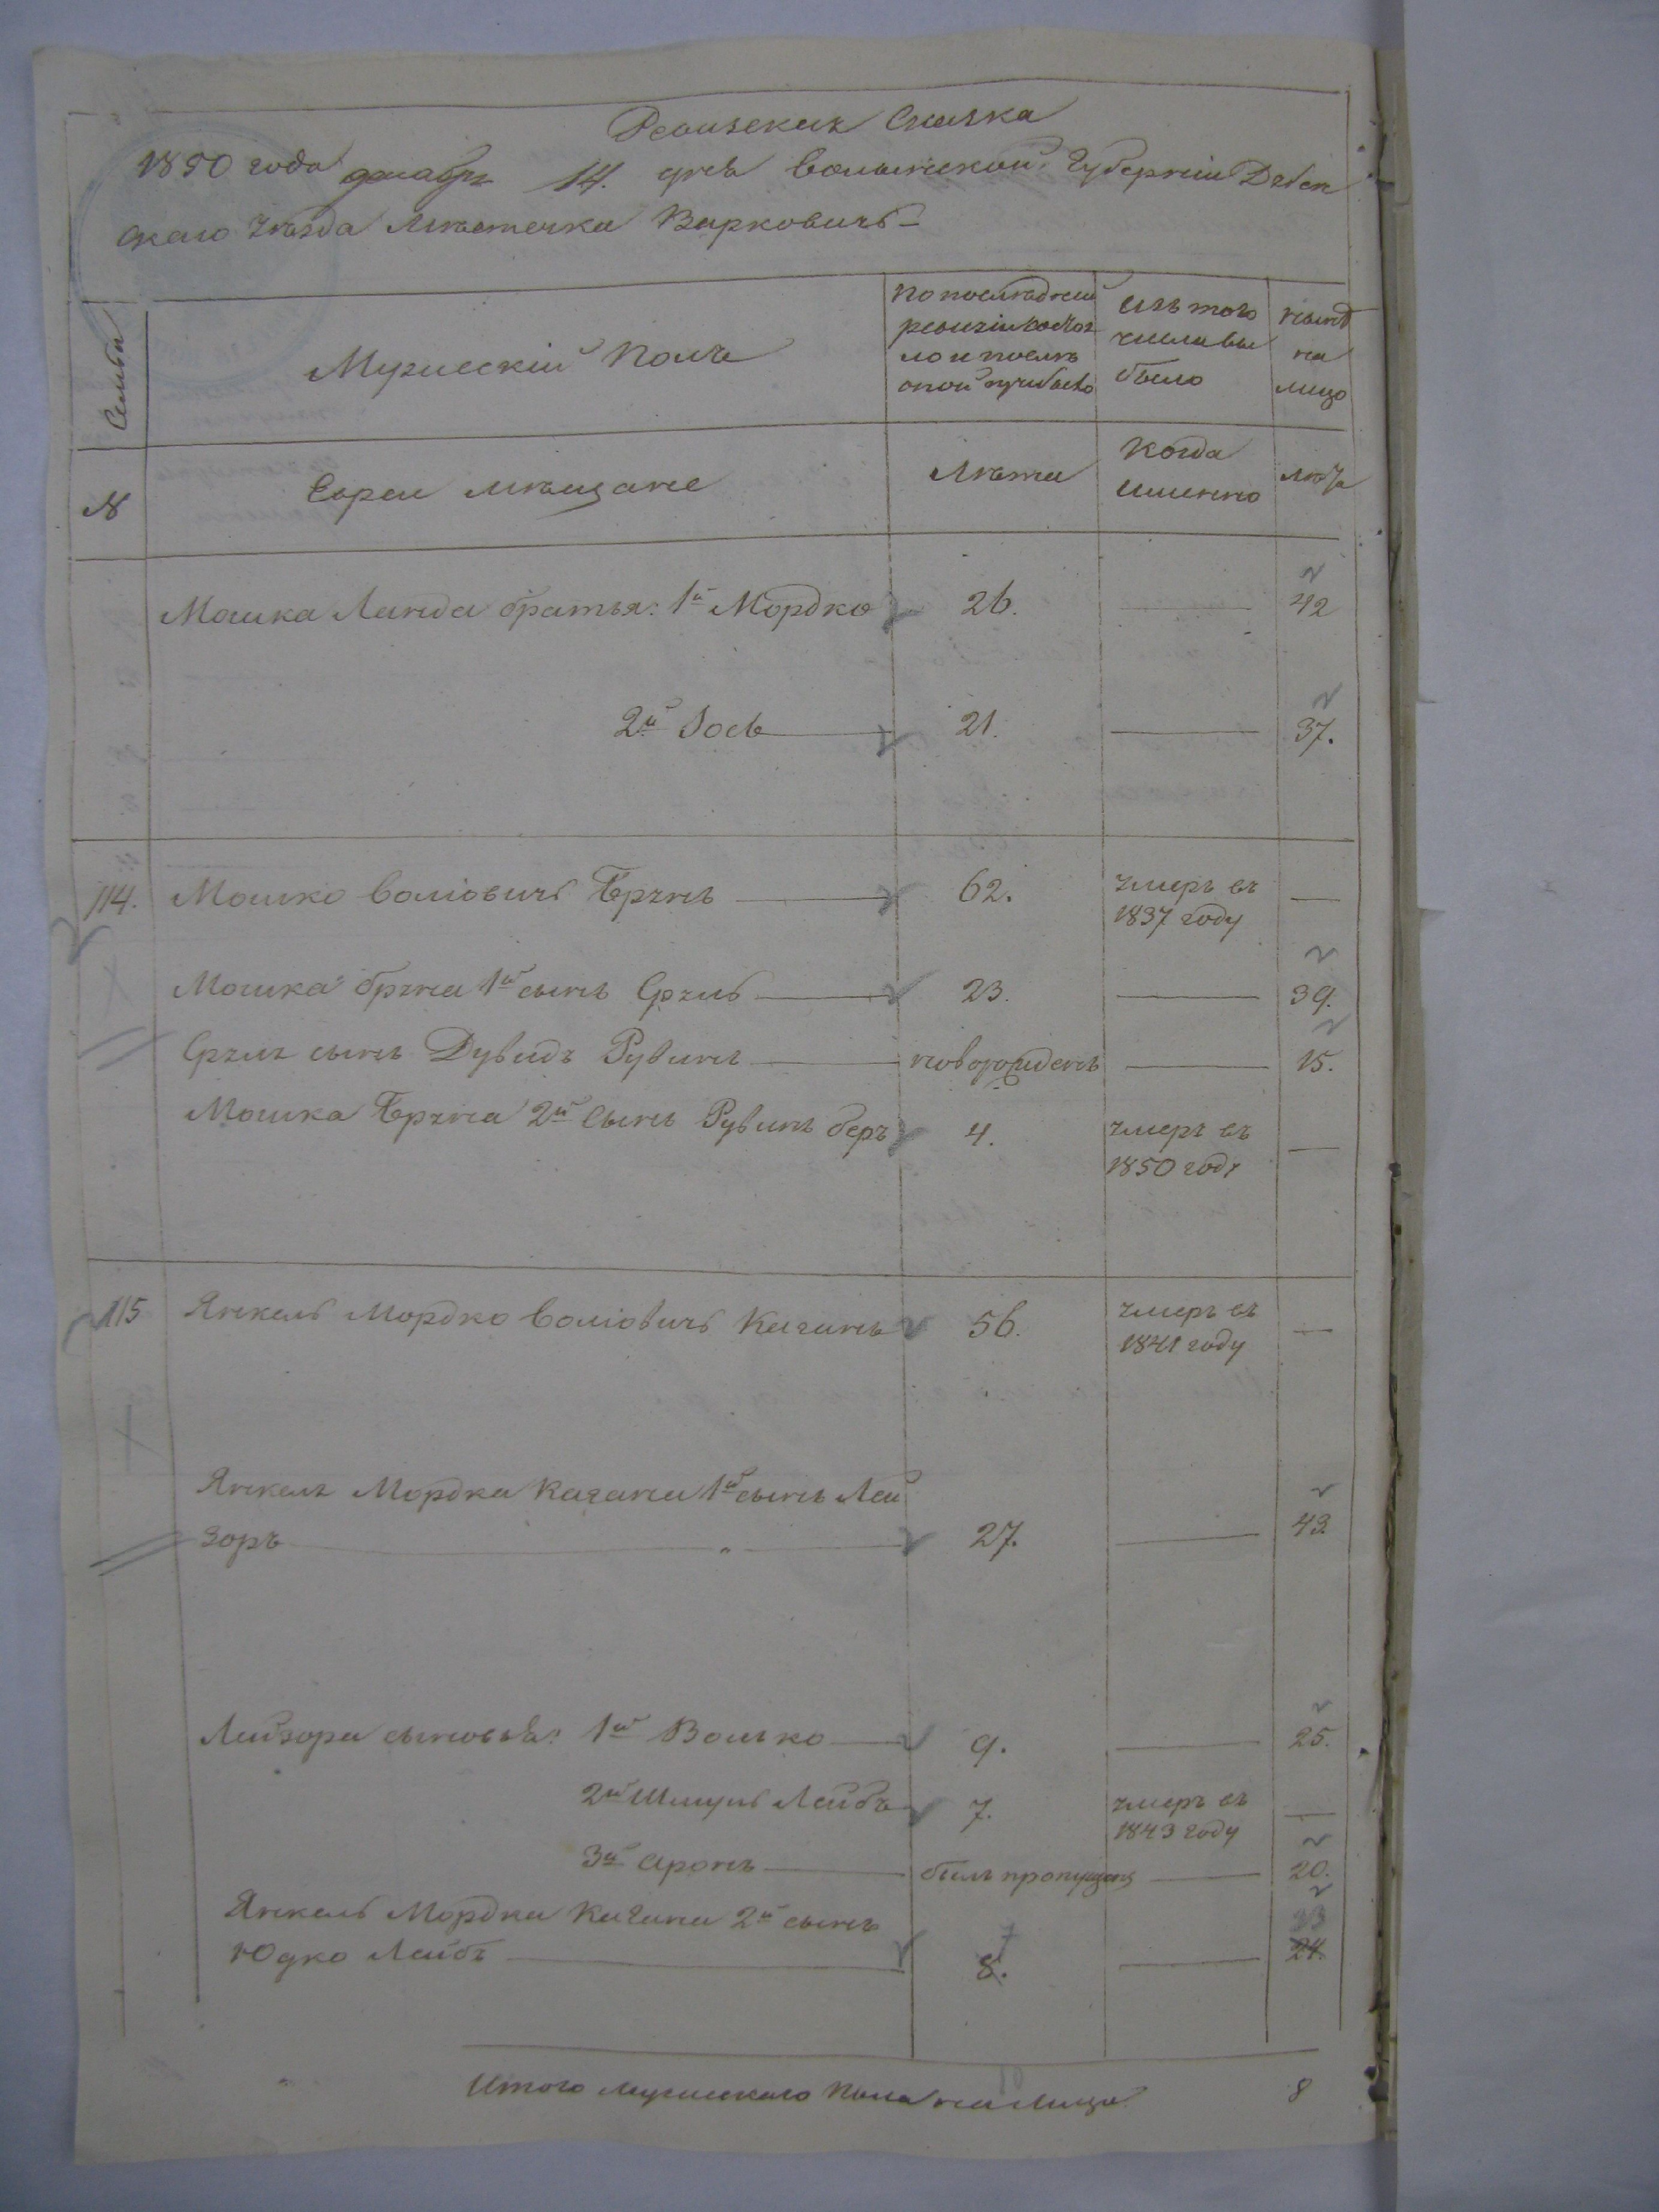 Ревизская Сказка
1850 года декабря 14. дня Волынской Губерніи Дубен
скаго уѣзда Мѣстечка Варковичъ
Семьи
Мужескій Полъ
по послѣдней ревизіи состояло и послѣ оной прибыло
Изъ того числа выбыло
нынѣ на лицо
№
Евреи мѣщане
Лѣта
Когда именно
лѣта
Мошка Ланда братья: 1й Мордко 26. — 42
2й Іось 21. — 37.
114. Мошко Воліовичъ Брунъ 62. умеръ въ 1837 году —
Мошка Бруна 1й сынъ Сруль 23. — 39.
Сруля сынъ Дувидъ Рувинъ новорожденъ — 15.
Мошка Бруна 2й сынъ Рувинъ беръ 4. умеръ въ 1850 году —
115 Янкель Мордко Воліовичъ Каганъ 56. умеръ въ 1841 году —
Янкеля Мордка Кагана 1й сынъ Лей
зоръ 27. — 43
Лейзора сыновья: 1й Волько 9. — 25.
2й Шмуль Лейбъ 7. умеръ въ 1843 году —
3й Аронъ былъ пропущенъ — 20.
Янкель Мордка Кагана 2й сынъ
Юдко Лейбъ 8. 7 — 24. 23
Итого мужескаго пола на лицо 8